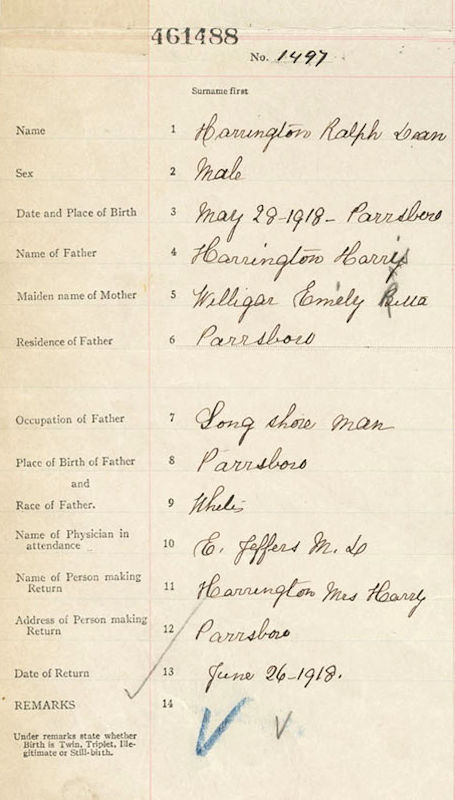 461488
No. 1497
Surname first
Name 1 Harrington Ralph Dean
Sex 2 Male
Date and Place of Birth 3 May 28-1918- Parrsboro
Name of Father 4 Harrington Harry
Maiden name of Mother 5 Welligar Emily
Residence of Father 6 Parrsboro
Occupation of Father 7 Long shore man
Place of Birth of Father 8 Parrsboro
and
Race of Father. 9 White
Name of Physician in
attendance 10 E. Jeffers M. D
Name of Person making
Return 11 Harrington Mrs Harry
Address of Person making
Return 12 Parrsboro
Date of Return 13 June 26-1918.
REMARKS 14
Under remarks state whether
Birth is Twin, Triplet, Ille-
gitimate or Still-birth.